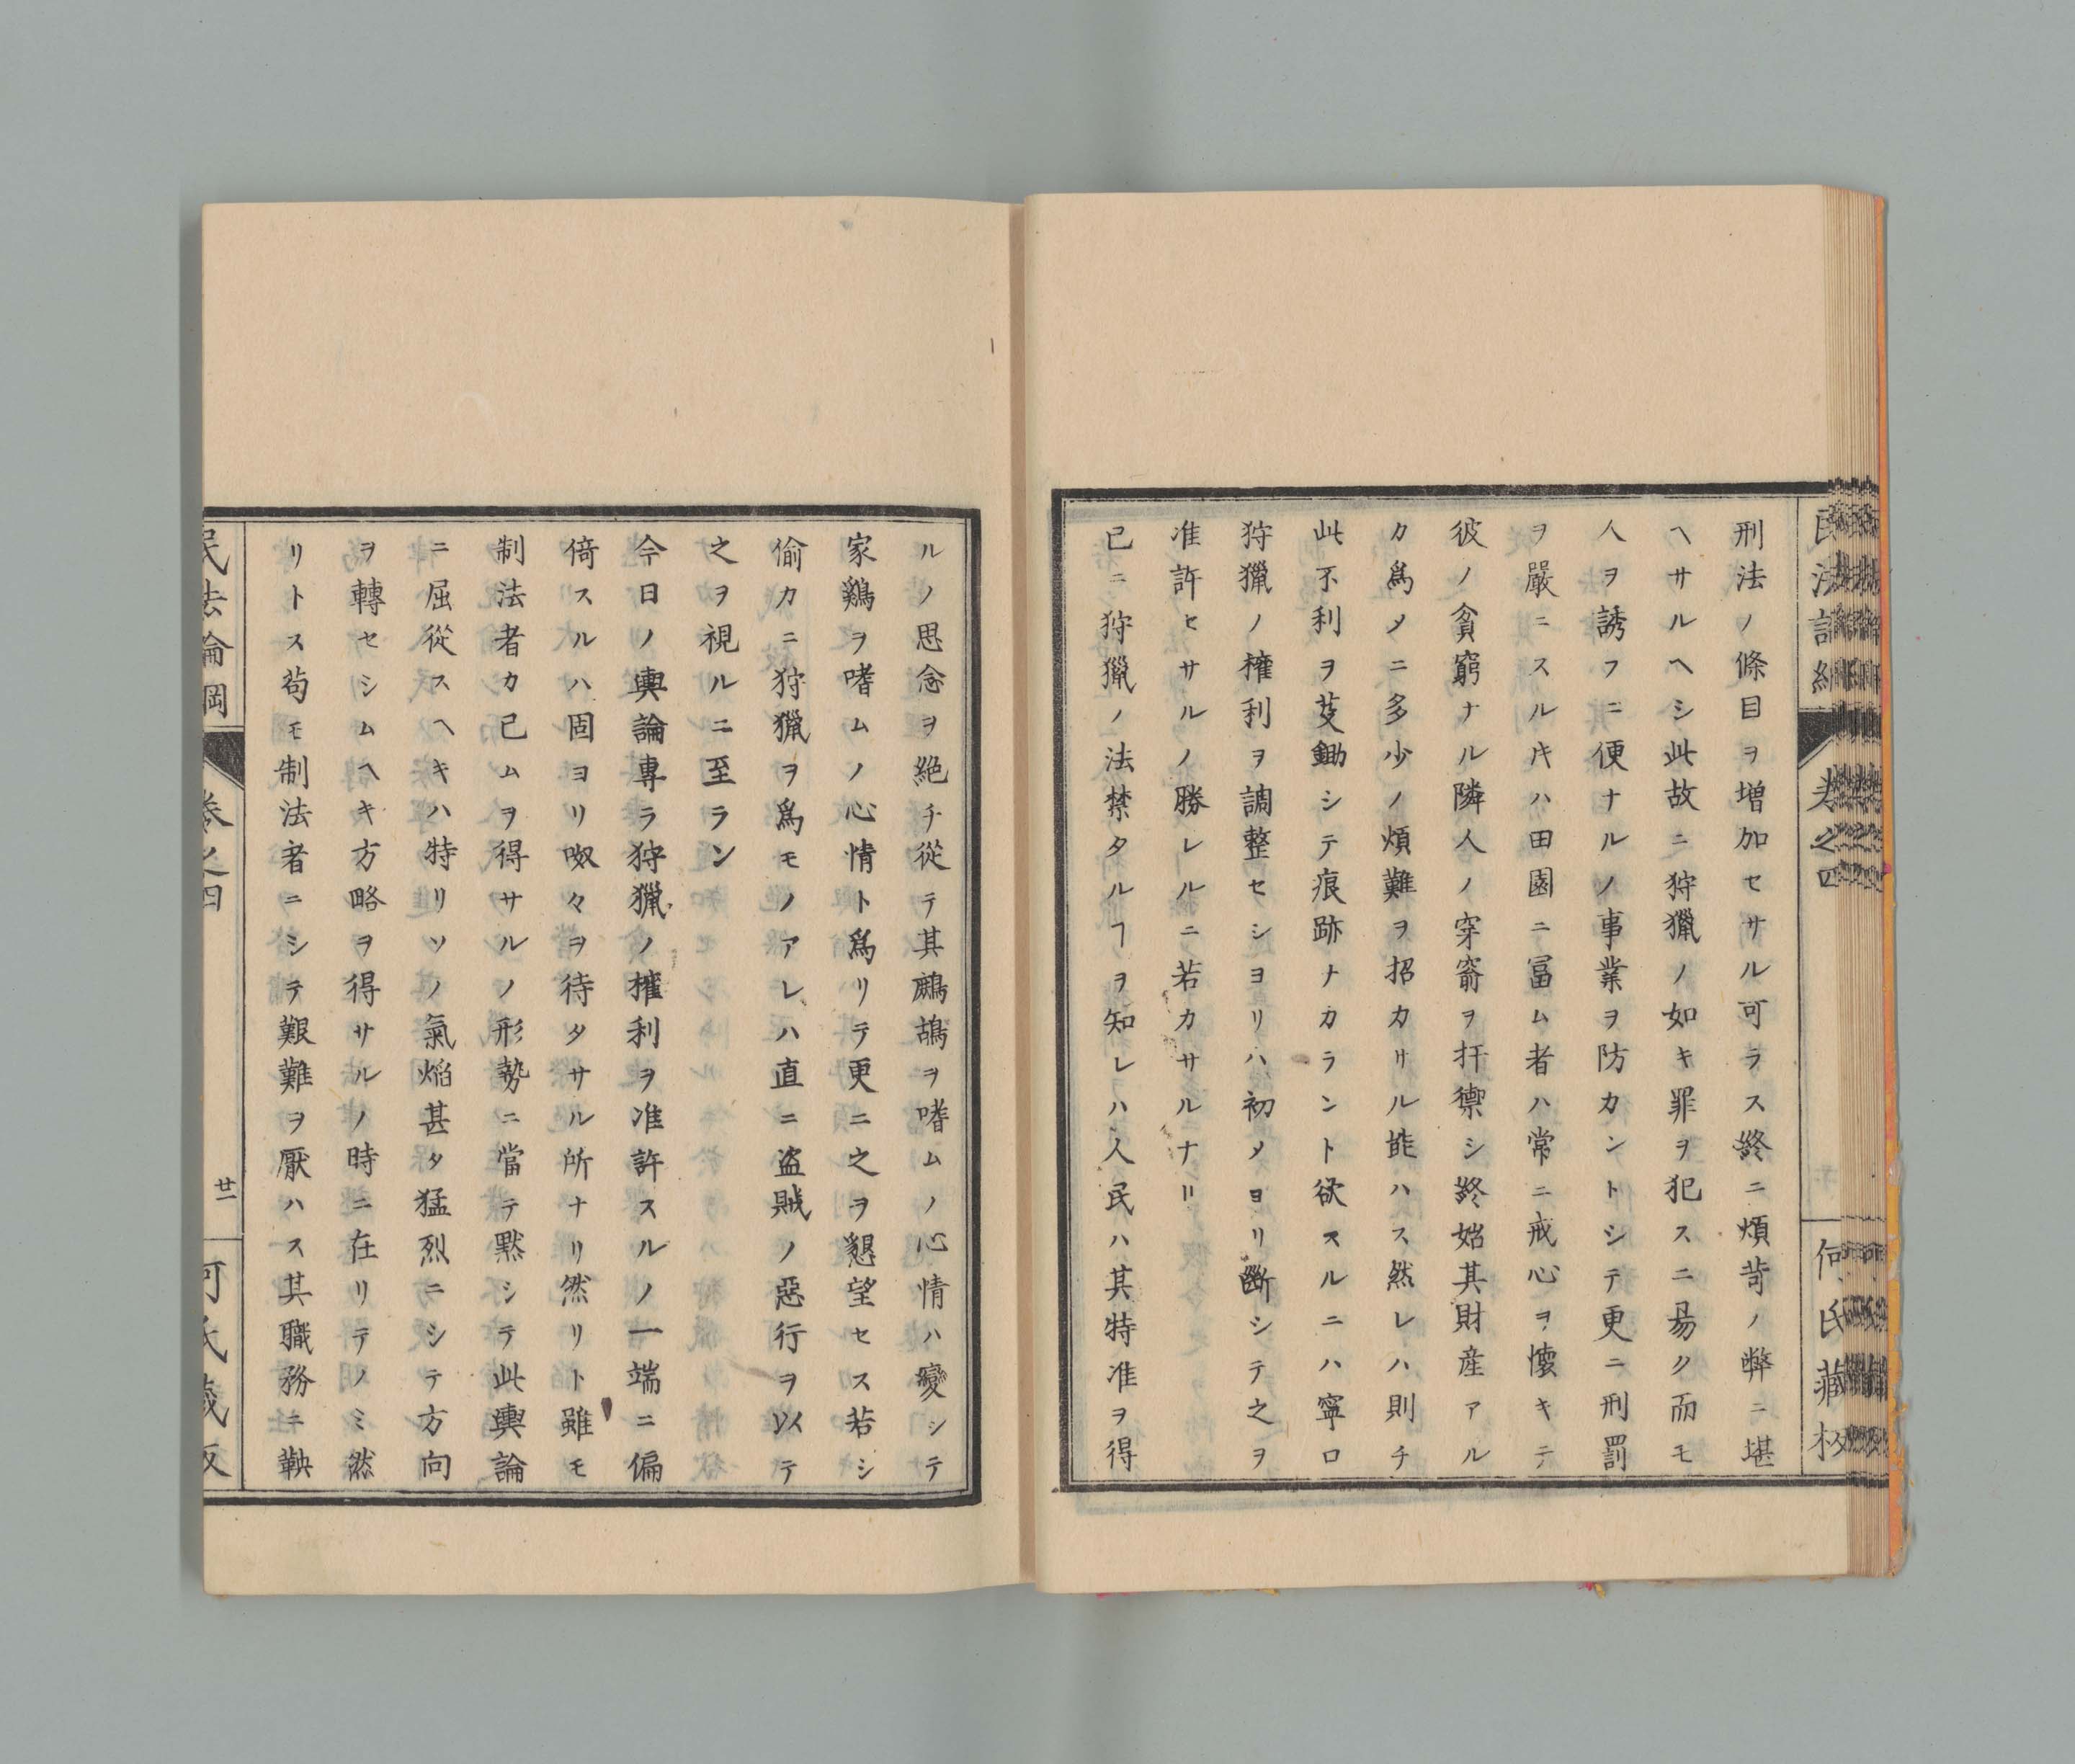 刑法ノ條目ヲ増加セサル可ラス終ニ煩苛ノ弊ニ堪
ヘサルヘシ此故ニ狩獵ノ如キ罪ヲ犯スニ易ク而モ
人ヲ誘フニ便ナルノ事業ヲ防カントシテ更ニ刑罰
ヲ嚴ニスル𪜈ハ田園ニ冨ム者ハ常ニ戒心ヲ懷キテ
彼ノ貧窮ナル隣人ノ穿窬ヲ扞禦シ終始其財産アル
カ爲メニ多少ノ煩難ヲ招カサル能ハス然レハ則チ
此不利ヲ芟鋤シテ痕跡ナカラント欲スルニハ寧ロ
狩獵ノ權利ヲ調整セシヨリハ初メヨリ斷シテ之ヲ
准許セサルノ勝レルニ若カサルナリ
已ニ狩獵ノ法禁タルヿヲ知レハ人民ハ其特准ヲ得
民法論綱 卷之四 何氏藏板
ルノ思念ヲ絶チ從テ其鷓鴣ヲ嗜ムノ心情ハ變シテ
家鷄ヲ嗜ムノ心情ト爲リテ更ニ之ヲ懇望セス若シ
偷カニ狩獵ヲ爲モノアレハ直ニ盗賊ノ惡行ヲ以テ
之ヲ視ルニ至ラン
今日ノ輿論專ラ狩獵ノ權利ヲ准許スルノ一端ニ偏
倚スルハ固ヨリ呶々ヲ待タサル所ナリ然リト雖モ
制法者カ已ムヲ得サルノ形勢ニ當テ黙シテ此輿論
ニ屈從スヘキハ特リソノ氣焔甚タ猛烈ニシテ方向
ヲ轉セシムヘキ方略ヲ得サルノ時ニ在リテノミ然
リトス苟モ制法者ニシテ艱難ヲ厭ハス其職務ニ鞅
民法論綱 卷之四 廿一 何氏藏板